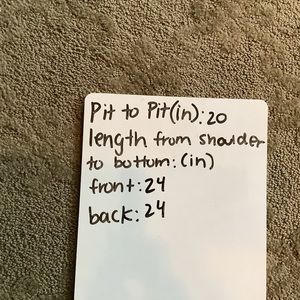 Pit to Pit(in):20
length from shoulder
to bottom:(in)
front:24
back:24